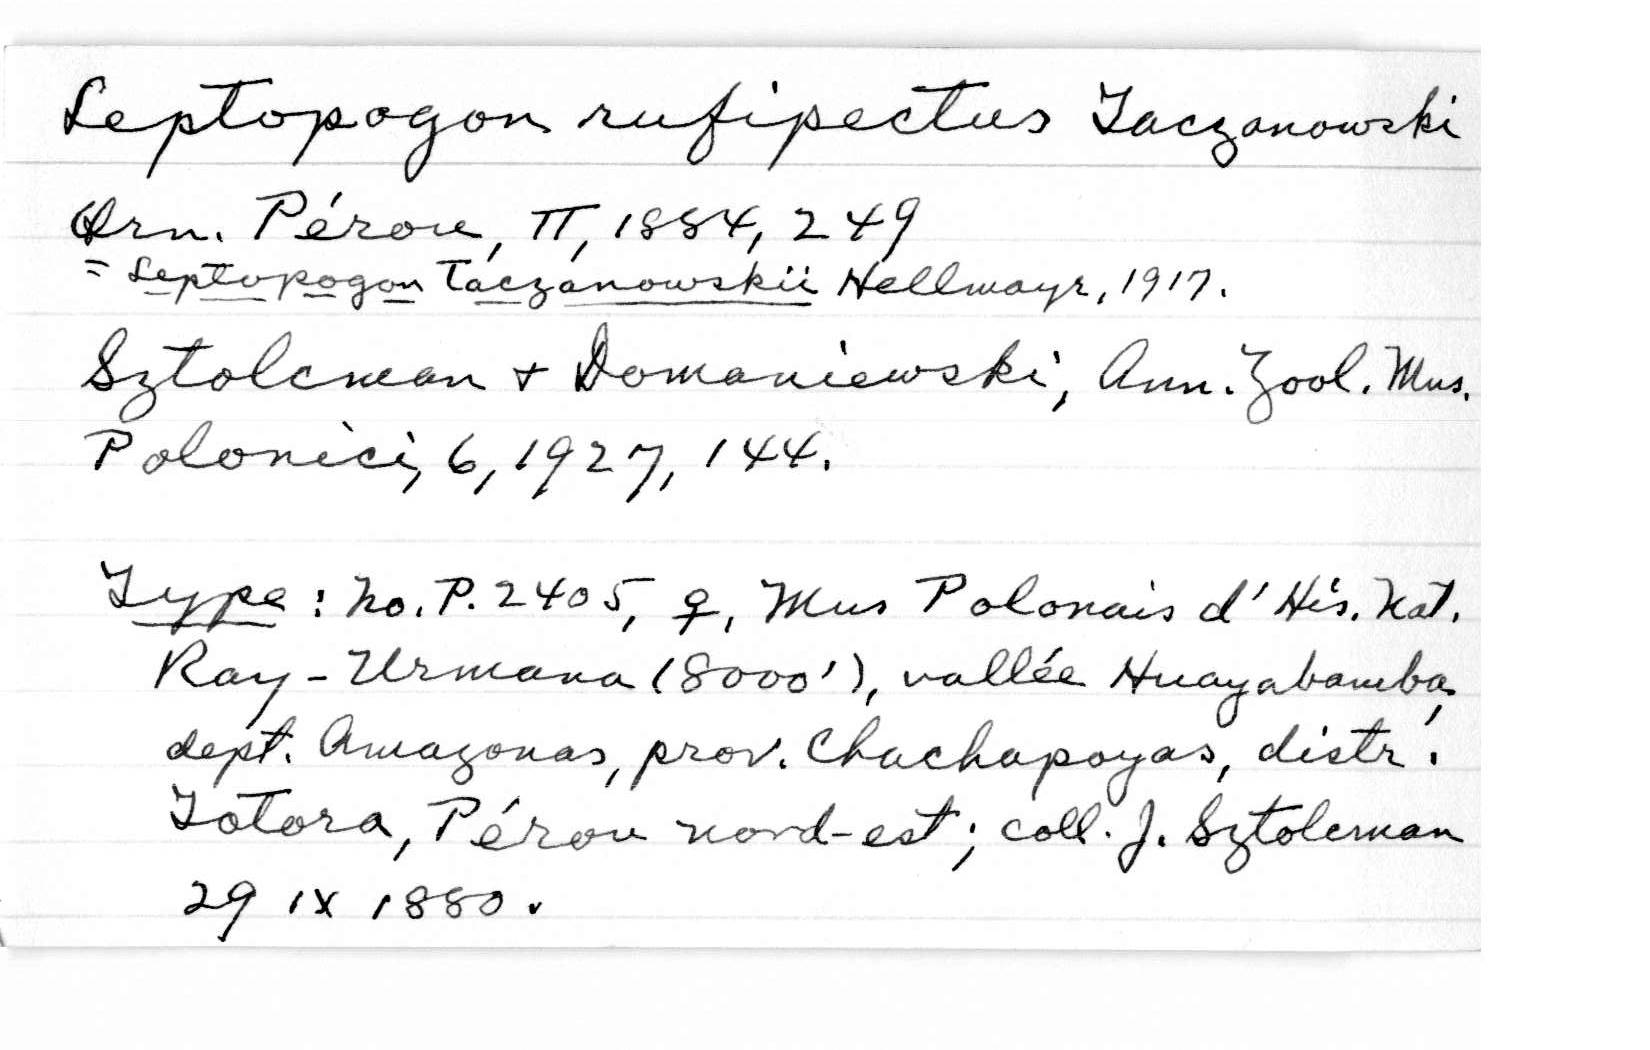 Leptopogon rufipectus Taczanowski
Orn. Pérou, II, 1884, 249
= Leptopogon taczanowskii Hellmayr, 1917.
Sztolcman + Domaniewski, Ann. Zool. Mus.
Polonici, 6, 1927, 144.
Type: No. P. 2405, ♀, Mus Polonais d'His. Nat.
Ray-Urmana (8000'), vallée Huayabamba,
dept. Amazonas, prov. Chachapoyas, distr.
Totora, Pérou nord-est; coll. J. Sztolcman
29 IX 1880.